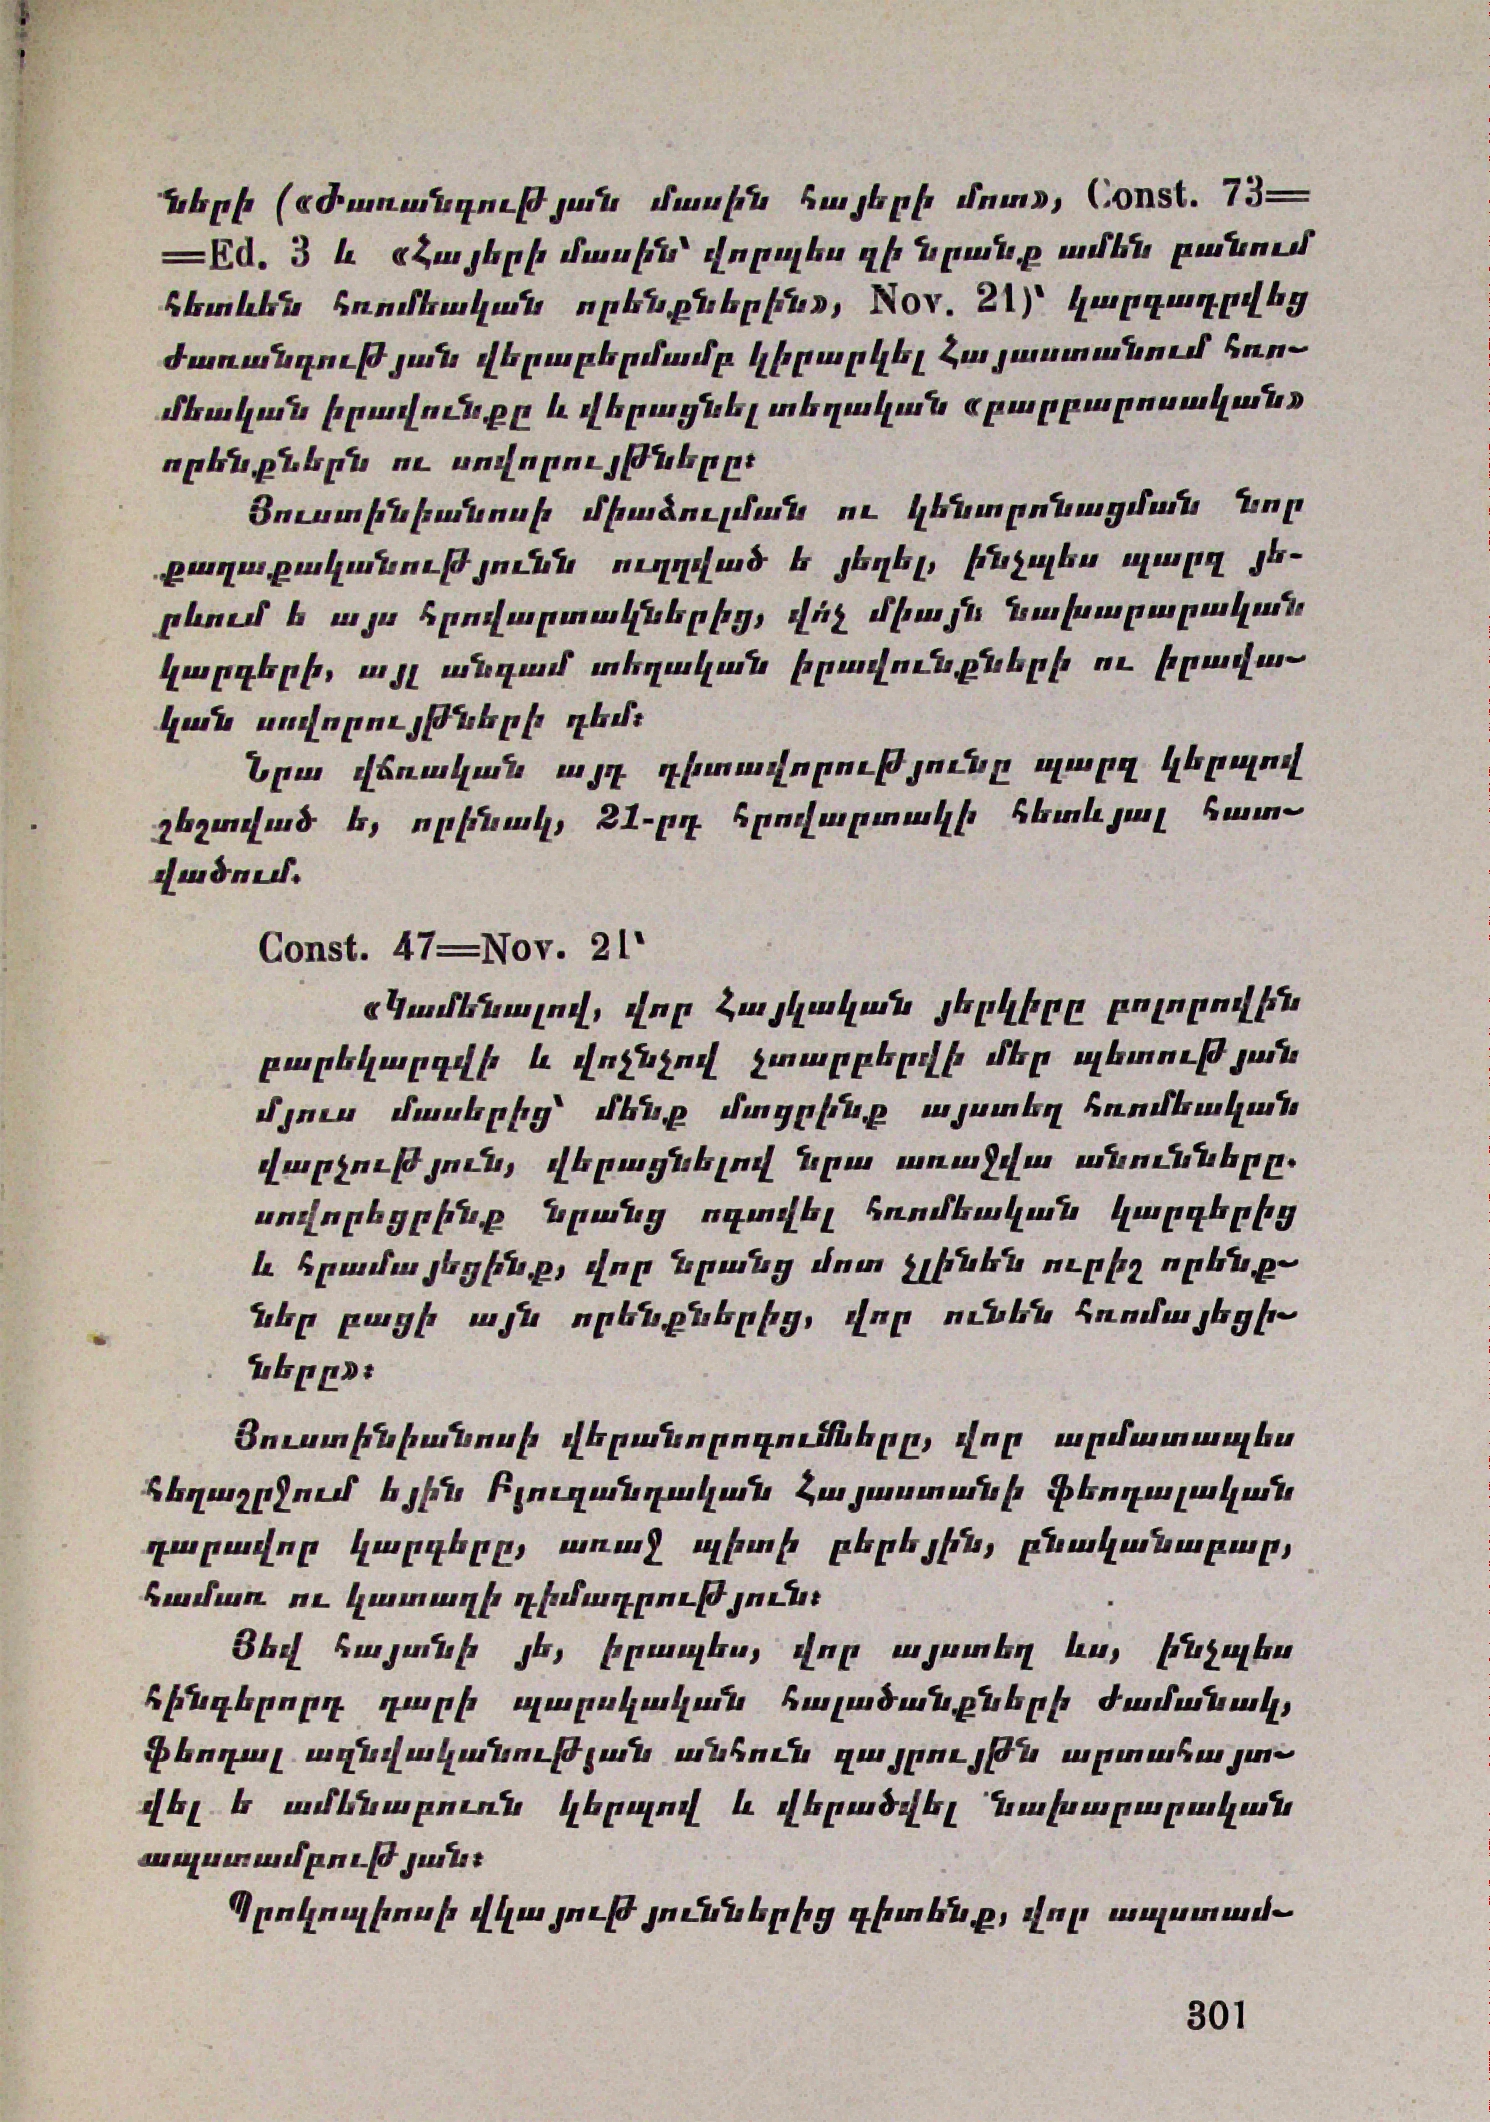 ների («Ժառանգության մասին հայերի մոտ», Const. 73=
=Ed. 3 և «Հայերի մասին՝ վորպես զի նրանք ամեն բանում
հետևեն հռոմեական որենքներին», Nov. 21)՝ կարգադրվեց
ժառանգության վերաբերմամբ կիրարկել Հայաստանում հռո-
մեական իրավունքը և վերացնել տեղական «բարբարոսական»
որենքներն ու սովորույթները։
Յուստինիանոսի միաձուլման ու կենտրոնացման նոր
քաղաքականությունն ուղղված ե յեղել, ինչպես պարզ յե-
րևում ե այս հրովարտակներից, վո՛չ միայն նախարարական
կարգերի, այլ անգամ տեղական իրավունքների ու իրավա-
կան սովորույթների դեմ։
Նրա վճռական այդ դիտավորությունը պարզ կերպով
շեշտված ե, որինակ, 21-րդ հրովարտակի հետևյալ հատ-
վածում.
Const. 47=Nov. 21՝
«Կամենալով, վոր Հայկական յերկիրը բոլորովին
բարեկարգվի և վոչնչով չտարբերվի մեր պետության
մյուս մասերից՝ մենք մտցրինք այստեղ հռոմեական
վարչություն, վերացնելով նրա առաջվա անունները.
սովորեցրինք նրանց ոգտվել հռոմեական կարգերից
և հրամայեցինք, վոր նրանց մոտ չլինեն ուրիշ որենք-
ներ բացի այն որենքներից, վոր ունեն հռոմայեցի-
ները»։
Յուստինիանոսի վերանորոգումները, վոր արմատապես
հեղաշրջում եյին Բյուզանդական Հայաստանի ֆեոդալական
դարավոր կարգերը, առաջ պիտի բերեյին, բնականաբար,
համառ ու կատաղի դիմադրություն։
Յեվ հայտնի յե, իրապես, վոր այստեղ ևս, ինչպես
հինգերորդ դարի պարսկական հալածանքների ժամանակ,
ֆեոդալ ազնվականության անհուն զայրույթն արտահայտ-
վել ե ամենաբուռն կերպով և վերածվել նախարարական
ապստամբության։
Պրոկոպիոսի վկայություններից գիտենք, վոր ապստամ-
301